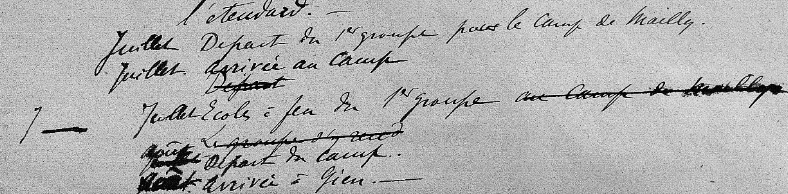 l'étendard. —
Juillet Départ du 1er groupe pour le Camp de Mailly.
Juillet. arrivée au Camp
Départ
7 — Juillet Ecoles à feu du 1er groupe au Camp de Mailly
Le groupe
août Départ du Camp.
août arrivée à Gien. —